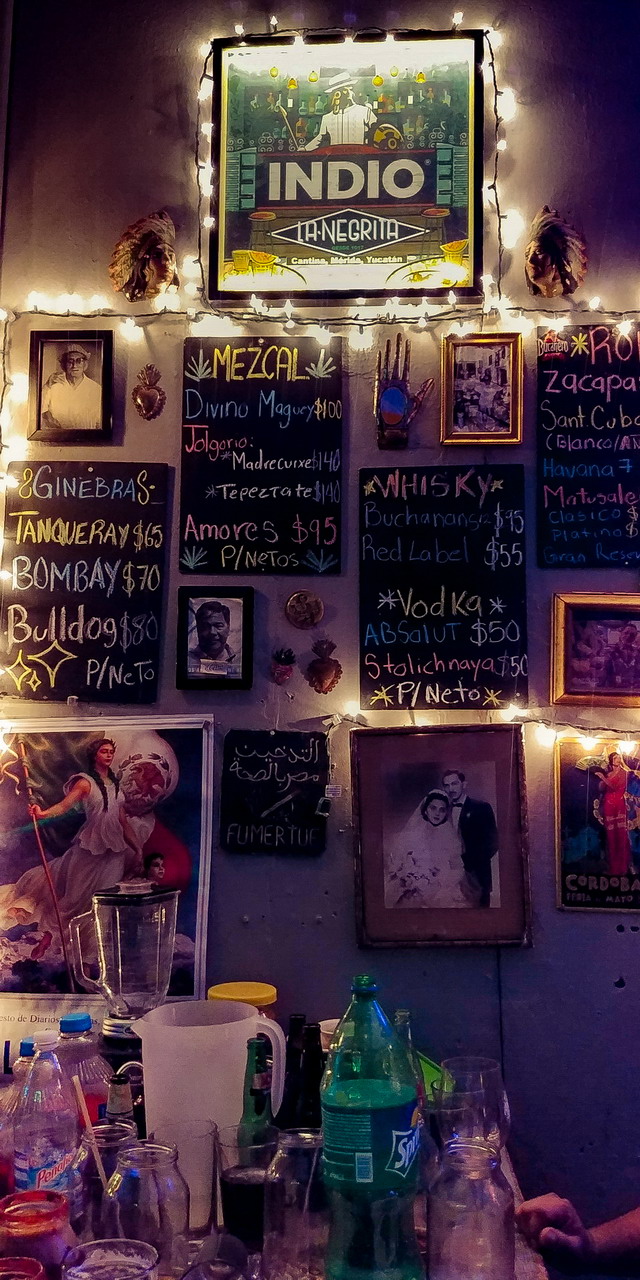 INDIO
LA·NEGRITA
DESDE 1917
Cantina, Mérida, Yucatán
MEZCAL
Divino Maguey $100
Jolgorio:
*Madrecuixe $140
*Tepeztate $140
Amores $95
P/Netos
GINEBRAS
TANQUERAY $65
BOMBAY $70
Bulldog $80
P/NETO
*WHISKY*
Buchanans $95
Red Label $55
*Vodka*
ABSOLUT $50
Stolichnaya $50
*P/Neto*
*RO
Zacapa
Sant. Cuba
(Blanco/AÑ
Havana 7
Matusale
Clasico $
Platino $
Gran Rese
التدخين
مضر بالصحة
FUMER TUE
CORDOBA
FERIA - MAYO
esto de Diarios
Peñafiel
Sprite